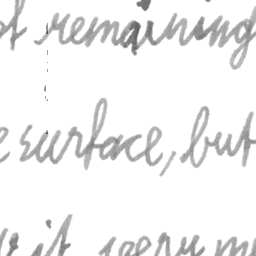 of remaining
e surface, but
it very mu